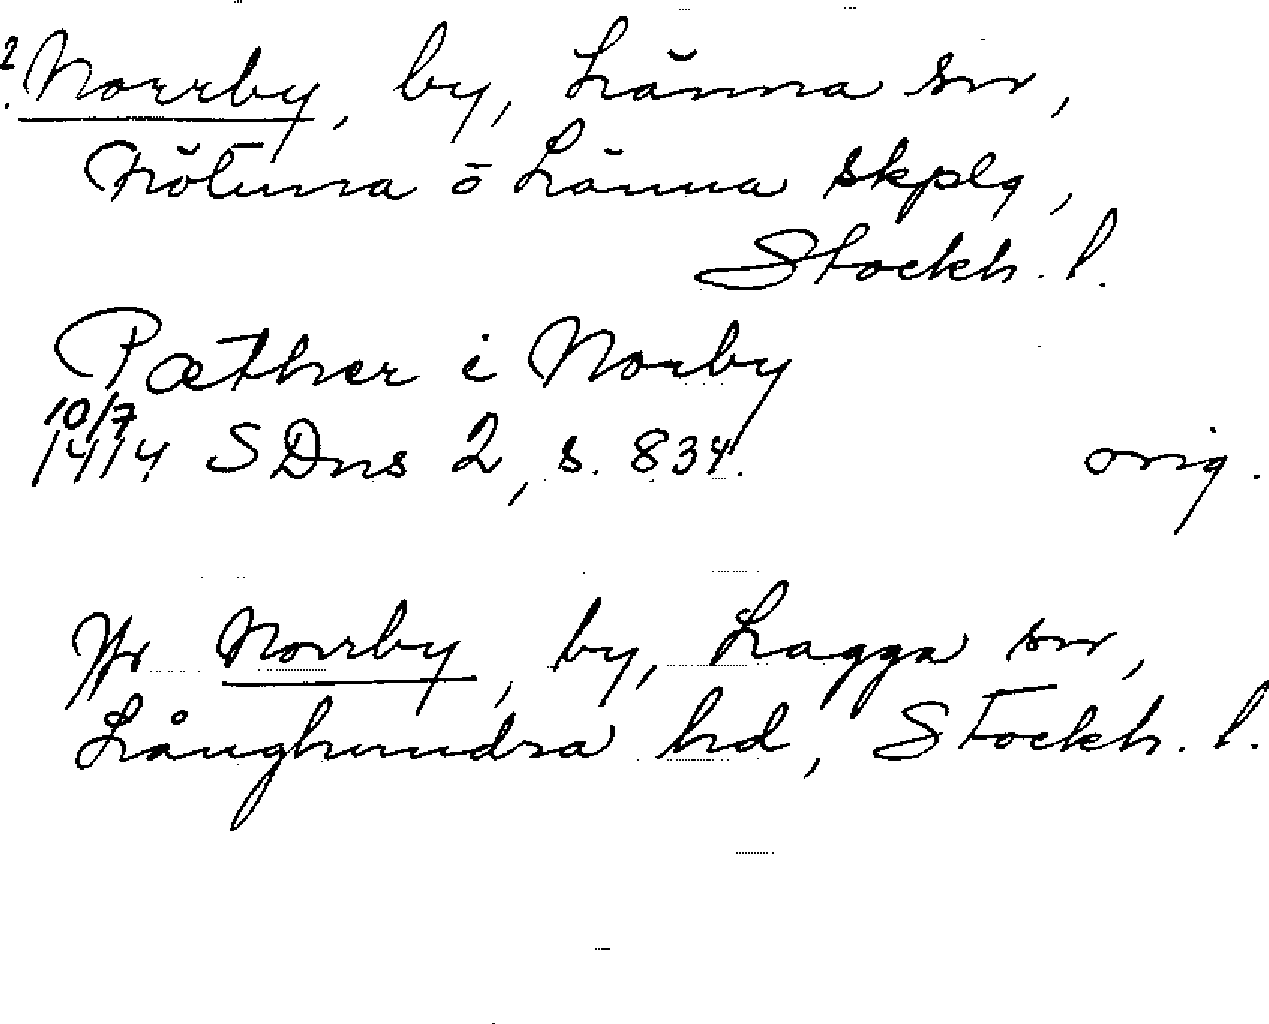 ? Norrby, by, Länna sn,
Frötuna o Länna skplg,
Stockh. l.
Pæther i Norby
10/7
1414 SDns 2, s. 834. orig.
Jfr Norrby, by, Lagga sn,
Långhundra hd, Stockh. l.